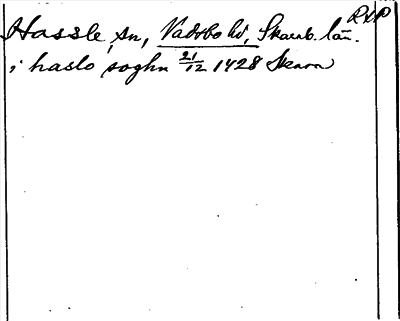 RAP
Hassle, sn, Vadsbo hd, Skarab. län.
i haslo soghn 21/12 1428 Skara